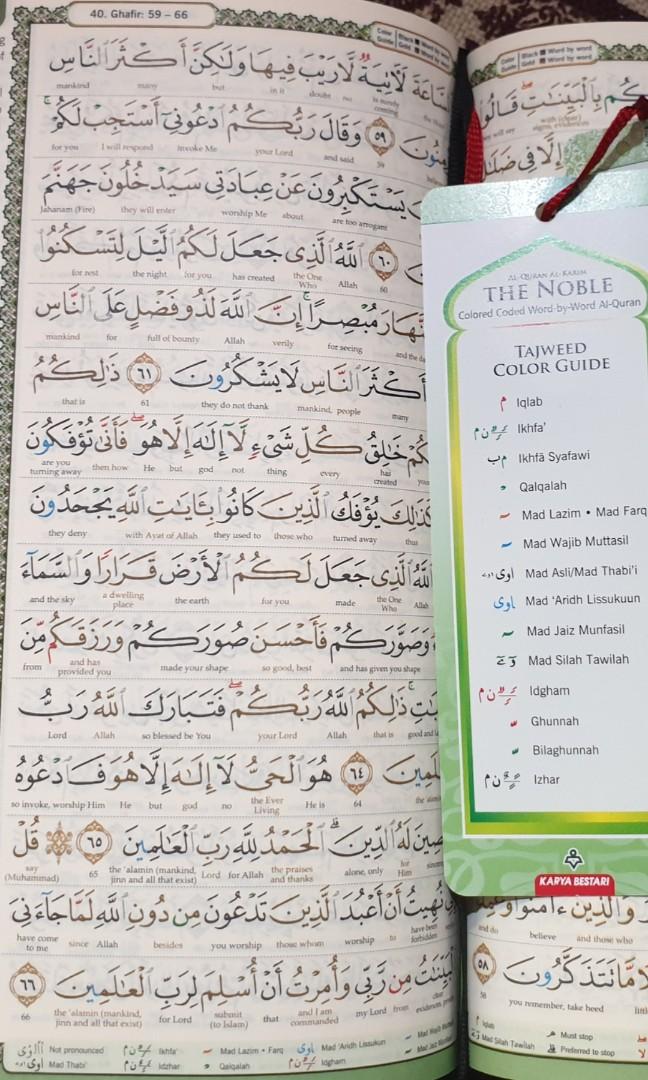 40. Ghafir: 59 – 66
لَآتِيَةٌ لَّا رَيْبَ فِيهَا وَلَٰكِنَّ أَكْثَرَ النَّاسِ
mankind many but in it doubt no is surely coming
٥٩ وَقَالَ رَبُّكُمُ ادْعُونِي أَسْتَجِبْ لَكُمْ
for you I will respond Invoke Me your Lord and said 59
يَسْتَكْبِرُونَ عَنْ عِبَادَتِي سَيَدْخُلُونَ جَهَنَّمَ
Jahanam (Fire) they will enter worship Me about are too arrogant
٦٠ اللَّهُ الَّذِي جَعَلَ لَكُمُ اللَّيْلَ لِتَسْكُنُوا
for rest the night for you has created the One Who Allah 60
مُبْصِرًا إِنَّ اللَّهَ لَذُو فَضْلٍ عَلَى النَّاسِ
mankind for full of bounty Allah verily for seeing
أَكْثَرَ النَّاسِ لَا يَشْكُرُونَ ٦١ ذَٰلِكُمُ
that is 61 they do not thank mankind, people many
خَالِقُ كُلِّ شَيْءٍ لَّا إِلَٰهَ إِلَّا هُوَ فَأَنَّىٰ تُؤْفَكُونَ
are you turning away then how He but god not thing every has created
كَذَٰلِكَ يُؤْفَكُ الَّذِينَ كَانُوا بِآيَاتِ اللَّهِ يَجْحَدُونَ
they deny with Ayat of Allah they used to those who turned away thus
اللَّهُ الَّذِي جَعَلَ لَكُمُ الْأَرْضَ قَرَارًا وَالسَّمَاءَ
and the sky a dwelling place the earth for you made the One Who Allah
وَصَوَّرَكُمْ فَأَحْسَنَ صُوَرَكُمْ وَرَزَقَكُم مِّنَ
from and has provided you made your shape so good, best and has given you shape
ذَٰلِكُمُ اللَّهُ رَبُّكُمْ فَتَبَارَكَ اللَّهُ رَبُّ
Lord Allah so blessed be You your Lord Allah that is
٦٤ هُوَ الْحَيُّ لَا إِلَٰهَ إِلَّا هُوَ فَادْعُوهُ
so invoke, worship Him He but god no the Ever Living He is 64
لَهُ الدِّينَ الْحَمْدُ لِلَّهِ رَبِّ الْعَالَمِينَ ٦٥ قُلْ
say (Muhammad) 65 the 'alamin (mankind, jinn and all that exist) Lord for Allah the praises and thanks alone, only for Him
نُهِيتُ أَنْ أَعْبُدَ الَّذِينَ تَدْعُونَ مِن دُونِ اللَّهِ لَمَّا جَاءَنِيَ
have come to me since Allah besides you worship those whom worship to have been forbidden
مِن رَّبِّي وَأُمِرْتُ أَنْ أُسْلِمَ لِرَبِّ الْعَالَمِينَ ٦٦
66 the 'alamin (mankind, jinn and all that exist) for Lord submit (to Islam) that and I am commanded my Lord from
Not pronounced Ikhfa' Mad Lazim • Farq Mad 'Aridh Lissukun
Mad Thabi' Idzhar Qalqalah Idgham
بِالْبَيِّنَاتِ قَالُوا
إِلَّا فِي
AL-QURAN AL-KARIM
THE NOBLE
Colored Coded Word-by-Word Al-Quran
TAJWEED
COLOR GUIDE
Iqlab
Ikhfa'
Ikhfā Syafawi
Qalqalah
Mad Lazim • Mad Farq
Mad Wajib Muttasil
Mad Asli/Mad Thabi'i
Mad 'Aridh Lissukuun
Mad Jaiz Munfasil
Mad Silah Tawilah
Idgham
Ghunnah
Bilaghunnah
Izhar
KARYA BESTARI
وَالَّذِينَ آمَنُوا
and do believe and those who
٥٨ مَّا تَتَذَكَّرُونَ
58 you remember, take heed
Iqlab Must stop
Mad Silah Tawilah Preferred to stop